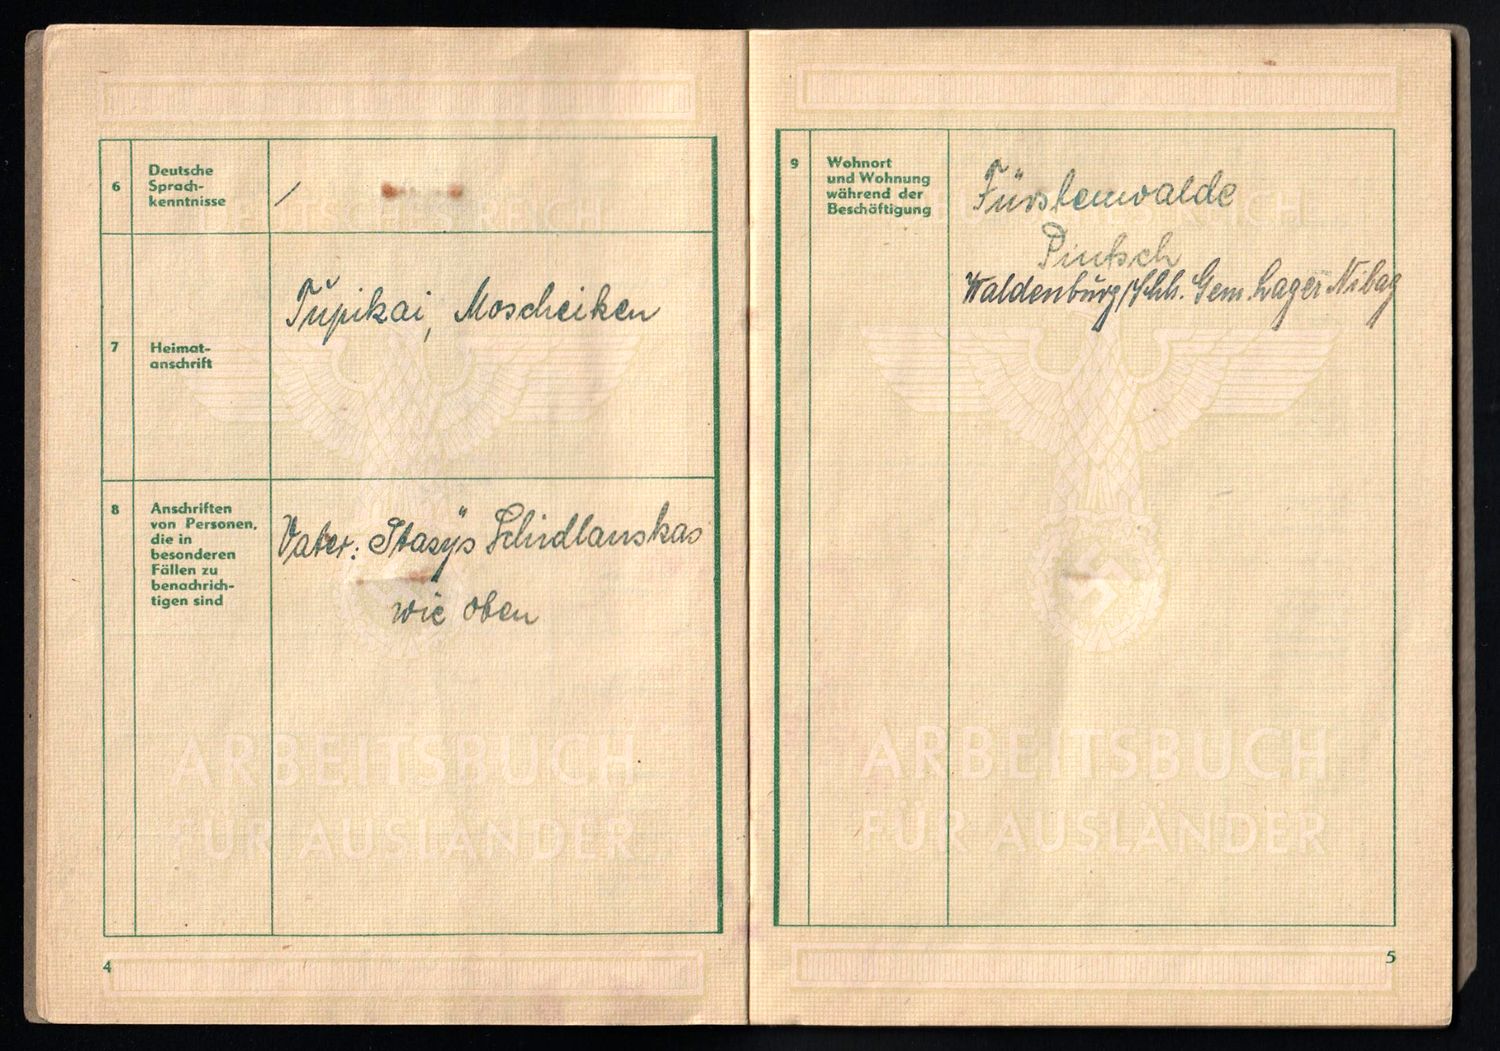 6
Deutsche
Sprach-
kenntnisse
/
7
Heimat-
anschrift
Tŭpikai, Moscheiken
8
Anschriften
von Personen,
die in
besonderen
Fällen zu
benachrich-
tigen sind
Vater: Stasÿs
wie oben
ARBEITSBUCH
FÜR AUSLÄNDER
4
9
Wohnort
und Wohnung
während der
Beschäftigung
Fürstenwalde
Pintsch
Waldenburg/Schl. Gem. Lager Nibag
ARBEITSBUCH
FÜR AUSLÄNDER
5